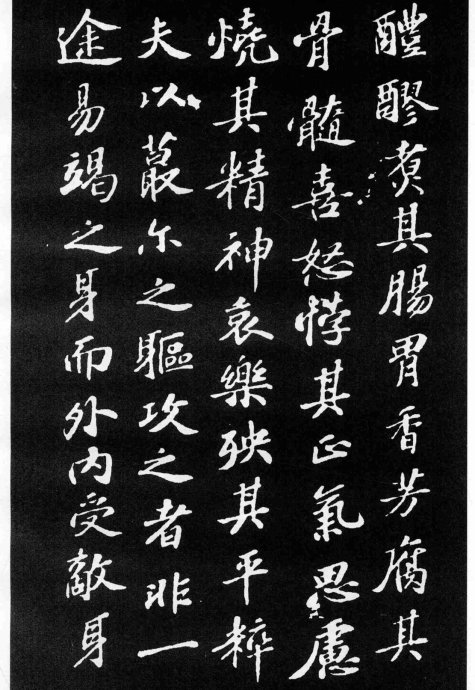 醴醪煑其腸胃香芳腐其
骨髓喜怒悖其正氣思慮
燒其精神哀樂殃其平粹
夫以蕞尔之軀攻之者非一
途易竭之身而外内受敵身